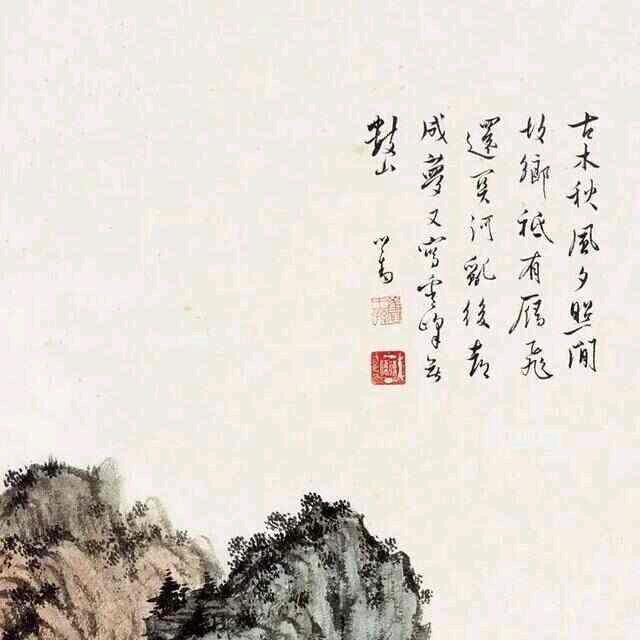 古木秋風夕照間
故鄉祗有雁飛
還關河亂後都
成夢又寫雲峰無
數山
心畬